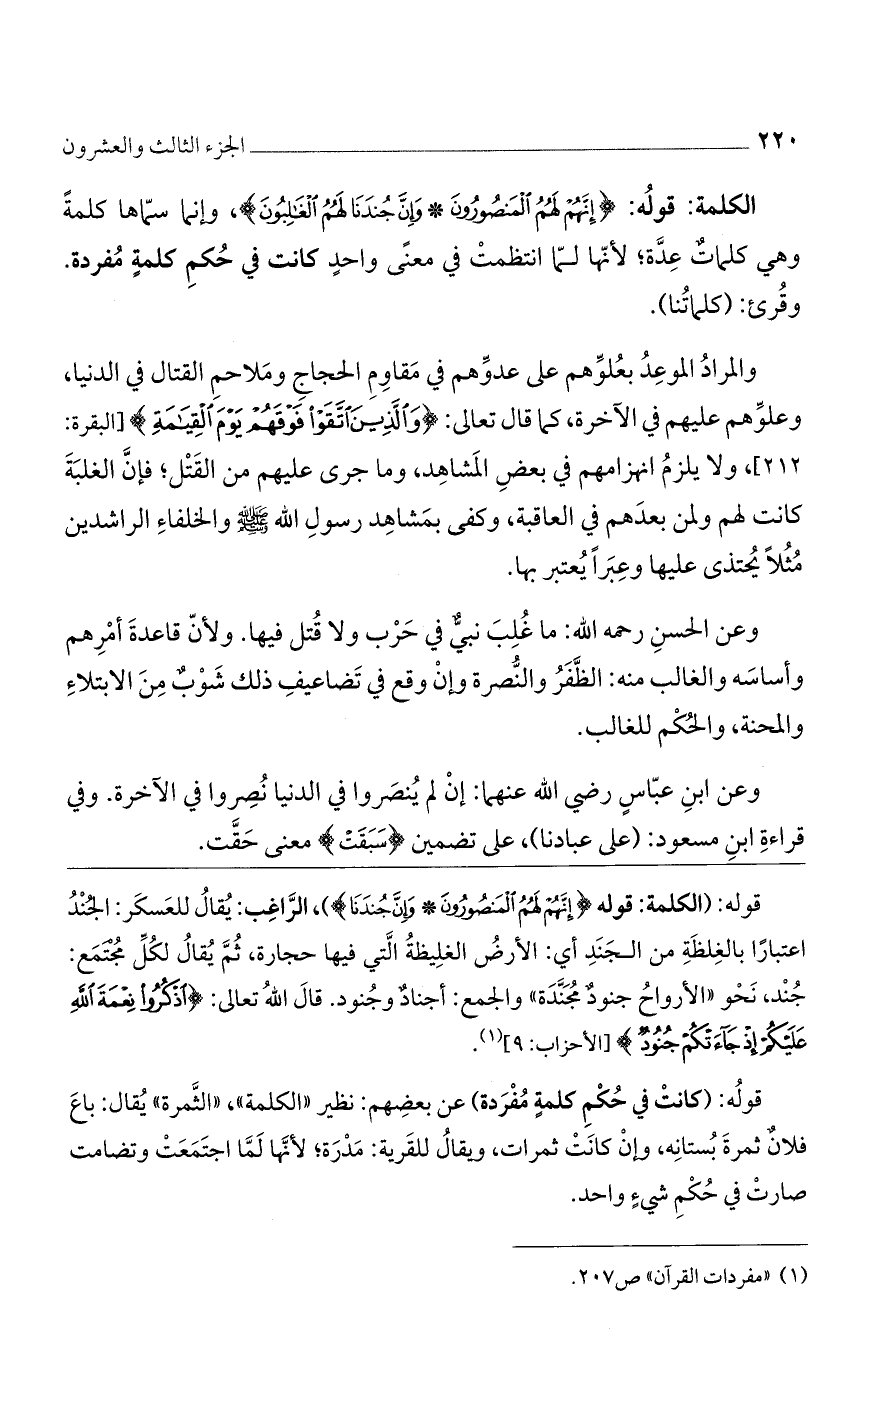 ٢٢٠ الجزء الثالث والعشرون
الكلمة: قولُه: ﴿إِنَّهُمْ لَهُمُ ٱلْمَنصُورُونَ * وَإِنَّ جُندَنَا لَهُمُ ٱلْغَٰلِبُونَ﴾، وإنما سمّاها كلمةً
وهي كلماتٌ عِدَّة؛ لأنّها لـمّا انتظمتْ في معنًى واحدٍ كانت في حُكمِ كلمةٍ مُفردة.
وقُرئ: (كلماتُنا).
والمرادُ الموعِدُ بعُلوِّهم على عدوِّهم في مَقاومِ الحجاجِ ومَلاحمِ القتال في الدنيا،
وعلوِّهم عليهم في الآخرة، كما قال تعالى: ﴿وَٱلَّذِينَ ٱتَّقَوْا۟ فَوْقَهُمْ يَوْمَ ٱلْقِيَٰمَةِ﴾ [البقرة:
٢١٢]، ولا يلزمُ انهزامهم في بعضِ المَشاهِد، وما جرى عليهم من القَتْل؛ فإنَّ الغلبَةَ
كانت لهم ولمن بعدَهم في العاقبة، وكفى بمَشاهِد رسولِ الله ﷺ والخلفاءِ الراشدين
مُثُلاً يُحتذى عليها وعِبَراً يُعتبر بها.
وعن الحسنِ رحمه الله: ما غُلِبَ نبيٌّ في حَرْب ولا قُتل فيها. ولأنّ قاعدةَ أمْرِهم
وأساسَه والغالب منه: الظَّفَرُ والنُّصرة وإنْ وقع في تَضاعيفِ ذلك شَوْبٌ مِنَ الابتلاءِ
والمحنة، والحُكْم للغالب.
وعن ابنِ عبّاسٍ رضي الله عنهما: إنْ لم يُنصَروا في الدنيا نُصِروا في الآخرة. وفي
قراءةِ ابنِ مسعود: (على عبادنا)، على تضمين ﴿سَبَقَتْ﴾ معنى حَقَّت.
قوله: (الكلمة: قوله ﴿إِنَّهُمْ لَهُمُ ٱلْمَنصُورُونَ * وَإِنَّ جُندَنَا﴾)، الرَّاغِب: يُقالُ للعَسكَر: الجُنْدُ
اعتبارًا بالغِلظَةِ من الـجَنَدِ أي: الأرضُ الغَلِيظةُ الَّتي فيها حجارة، ثُمَّ يُقالُ لكُلِّ مُجْتَمَع:
جُنْد، نَحْو «الأرواحُ جنودٌ مُجَنَّدَة» والجمع: أجنادٌ وجُنود. قالَ اللهُ تعالى: ﴿ٱذْكُرُوا۟ نِعْمَةَ ٱللَّهِ
عَلَيْكُمْ إِذْ جَآءَتْكُمْ جُنُودٌ﴾ [الأحزاب: ٩](١).
قولُه: (كانتْ في حُكْمِ كلمةٍ مُفْرَدة) عن بعضِهم: نظير «الكلمة»، «الثَّمرة» يُقال: باعَ
فلانٌ ثمرةَ بُستانِه، وإنْ كانَتْ ثمرات، ويقالُ للقَرية: مَدْرَة؛ لأنَّها لَمَّا اجتَمَعَتْ وتضامت
صارتْ في حُكْمِ شيءٍ واحد.
(١) «مفردات القرآن» ص٢٠٧.